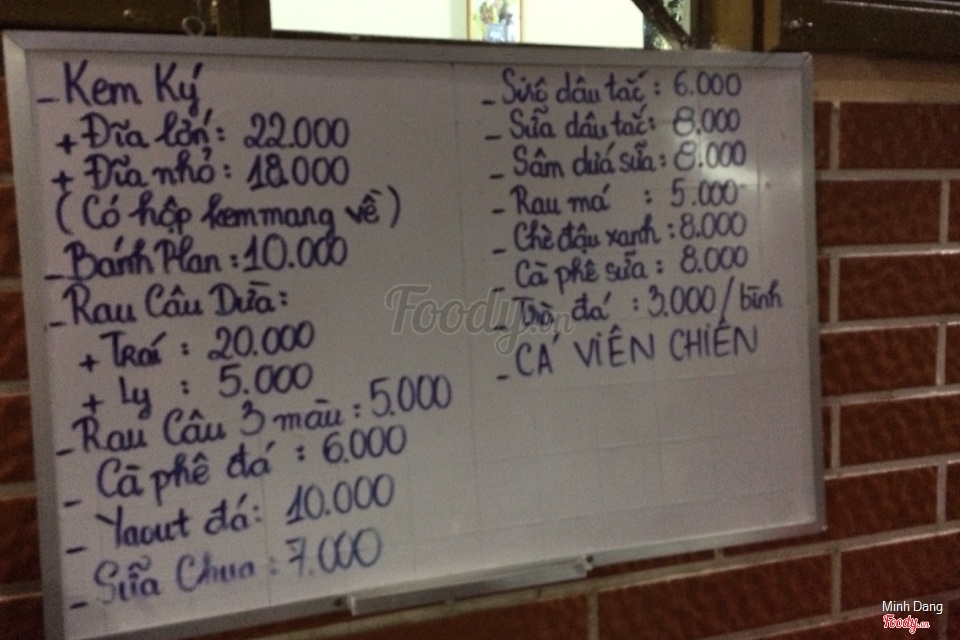 - Kem Ký
+ Đĩa lớn: 22.000
+ Đĩa nhỏ: 18.000
(Có hộp kem mang về)
- Bánh Plan: 10.000
- Rau Câu Dừa:
+ Trái: 20.000
+ Ly: 5.000
- Rau Câu 3 màu: 5.000
- Cà phê đá: 6.000
- Yaout đá: 10.000
- Sữa Chua: 7.000
- dâu tắc: 6.000
- Sữa dâu tắc: 8.000
- Sâm dứa sữa: 8.000
- Rau má: 5.000
- Chè đậu xanh: 8.000
- Cà phê sữa: 8.000
- Trà đá: 3.000/bình
- CÁ VIÊN CHIÊN
Foody.vn
Minh Dang
Foody.vn